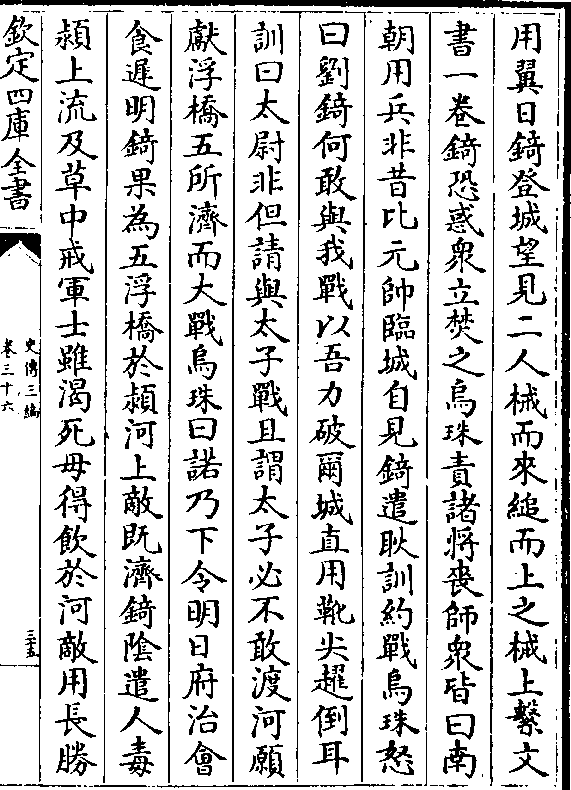 用翼日錡登城望見二人械而來縋而上之械上繫文
書一卷錡恐惑衆立焚之烏珠責諸將喪師衆皆曰南
朝用兵非昔比元帥臨城自見錡遣耿訓約戰烏珠怒
曰劉錡何敢與我戰以吾力破爾城直用靴尖趯倒耳
訓曰太尉非但請與太子戰且謂太子必不敢渡河願
獻浮橋五所濟而大戰烏珠曰諾乃下令明日府治會
食遲明錡果為五浮橋於潁河上敵既濟錡陰遣人毒
潁上流及草中戒軍士雖渴死毋得飲於河敵用長勝
欽定四庫全書
史傳三編
卷三十六
三五